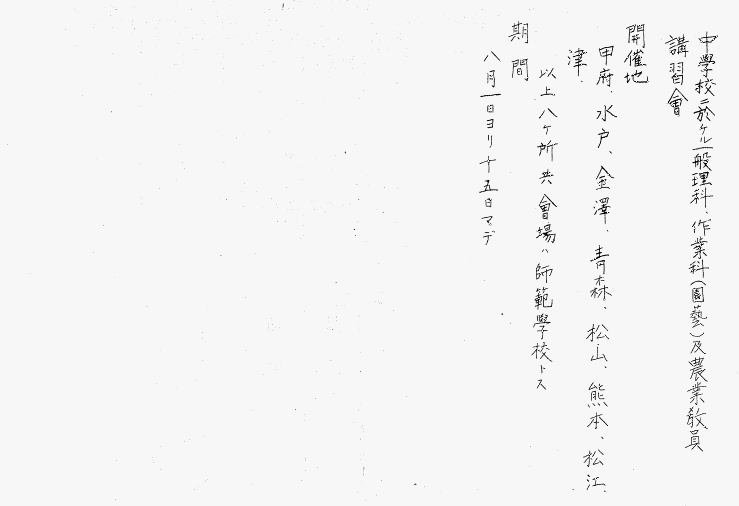 中學校ニ於ケル一般理科、作業科(園藝)及農業敎員
講習會
開催地
甲府、水戸、金澤、青森、松山、熊本、松江、
津、
以上八ケ所共會場ハ師範學校トス
期間
八月一日ヨリ十五日マデ